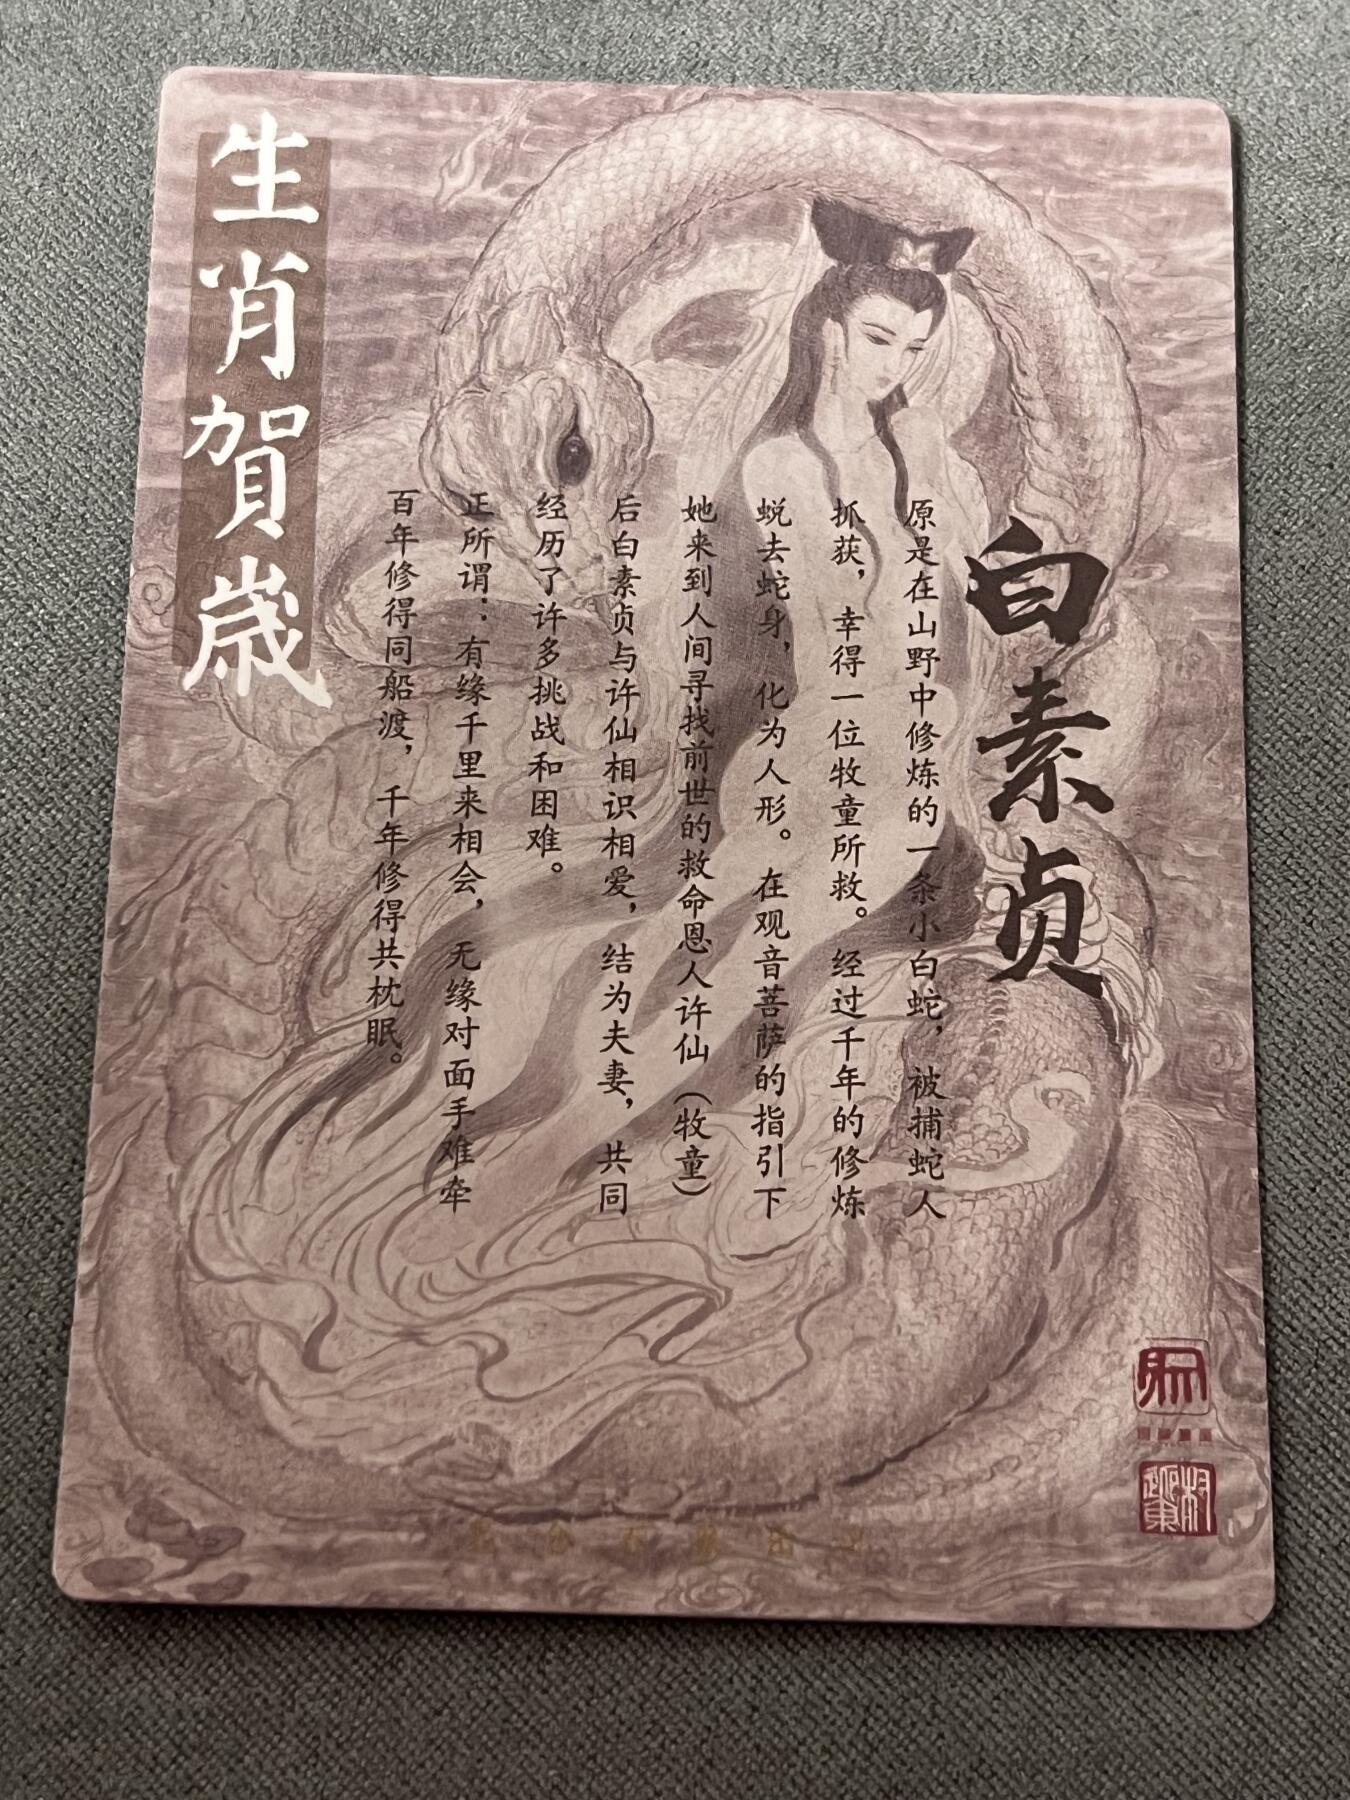 生肖賀歳
白素贞
原是在山野中修炼的一条小白蛇，被捕蛇人
抓获，幸得一位牧童所救。经过千年的修炼
蜕去蛇身，化为人形。在观音菩萨的指引下
她来到人间寻找前世的救命恩人许仙（牧童）
后白素贞与许仙相识相爱，结为夫妻，共同
经历了许多挑战和困难。
正所谓：有缘千里来相会，无缘对面手难牵
百年修得同船渡，千年修得共枕眠。